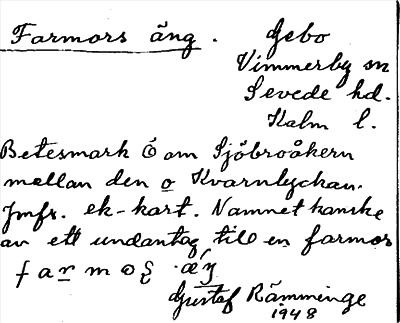 Farmors äng. Gebo
Vimmerby sn
Sevede hd.
Kalm l.
Betesmark Ö om Sjöbroåkern
mellan den o Kvarnlyckan.
Jmfr. ek-kart. Namnet kanske
av ett undantag till en farmor
Gustaf Rämminge
1948